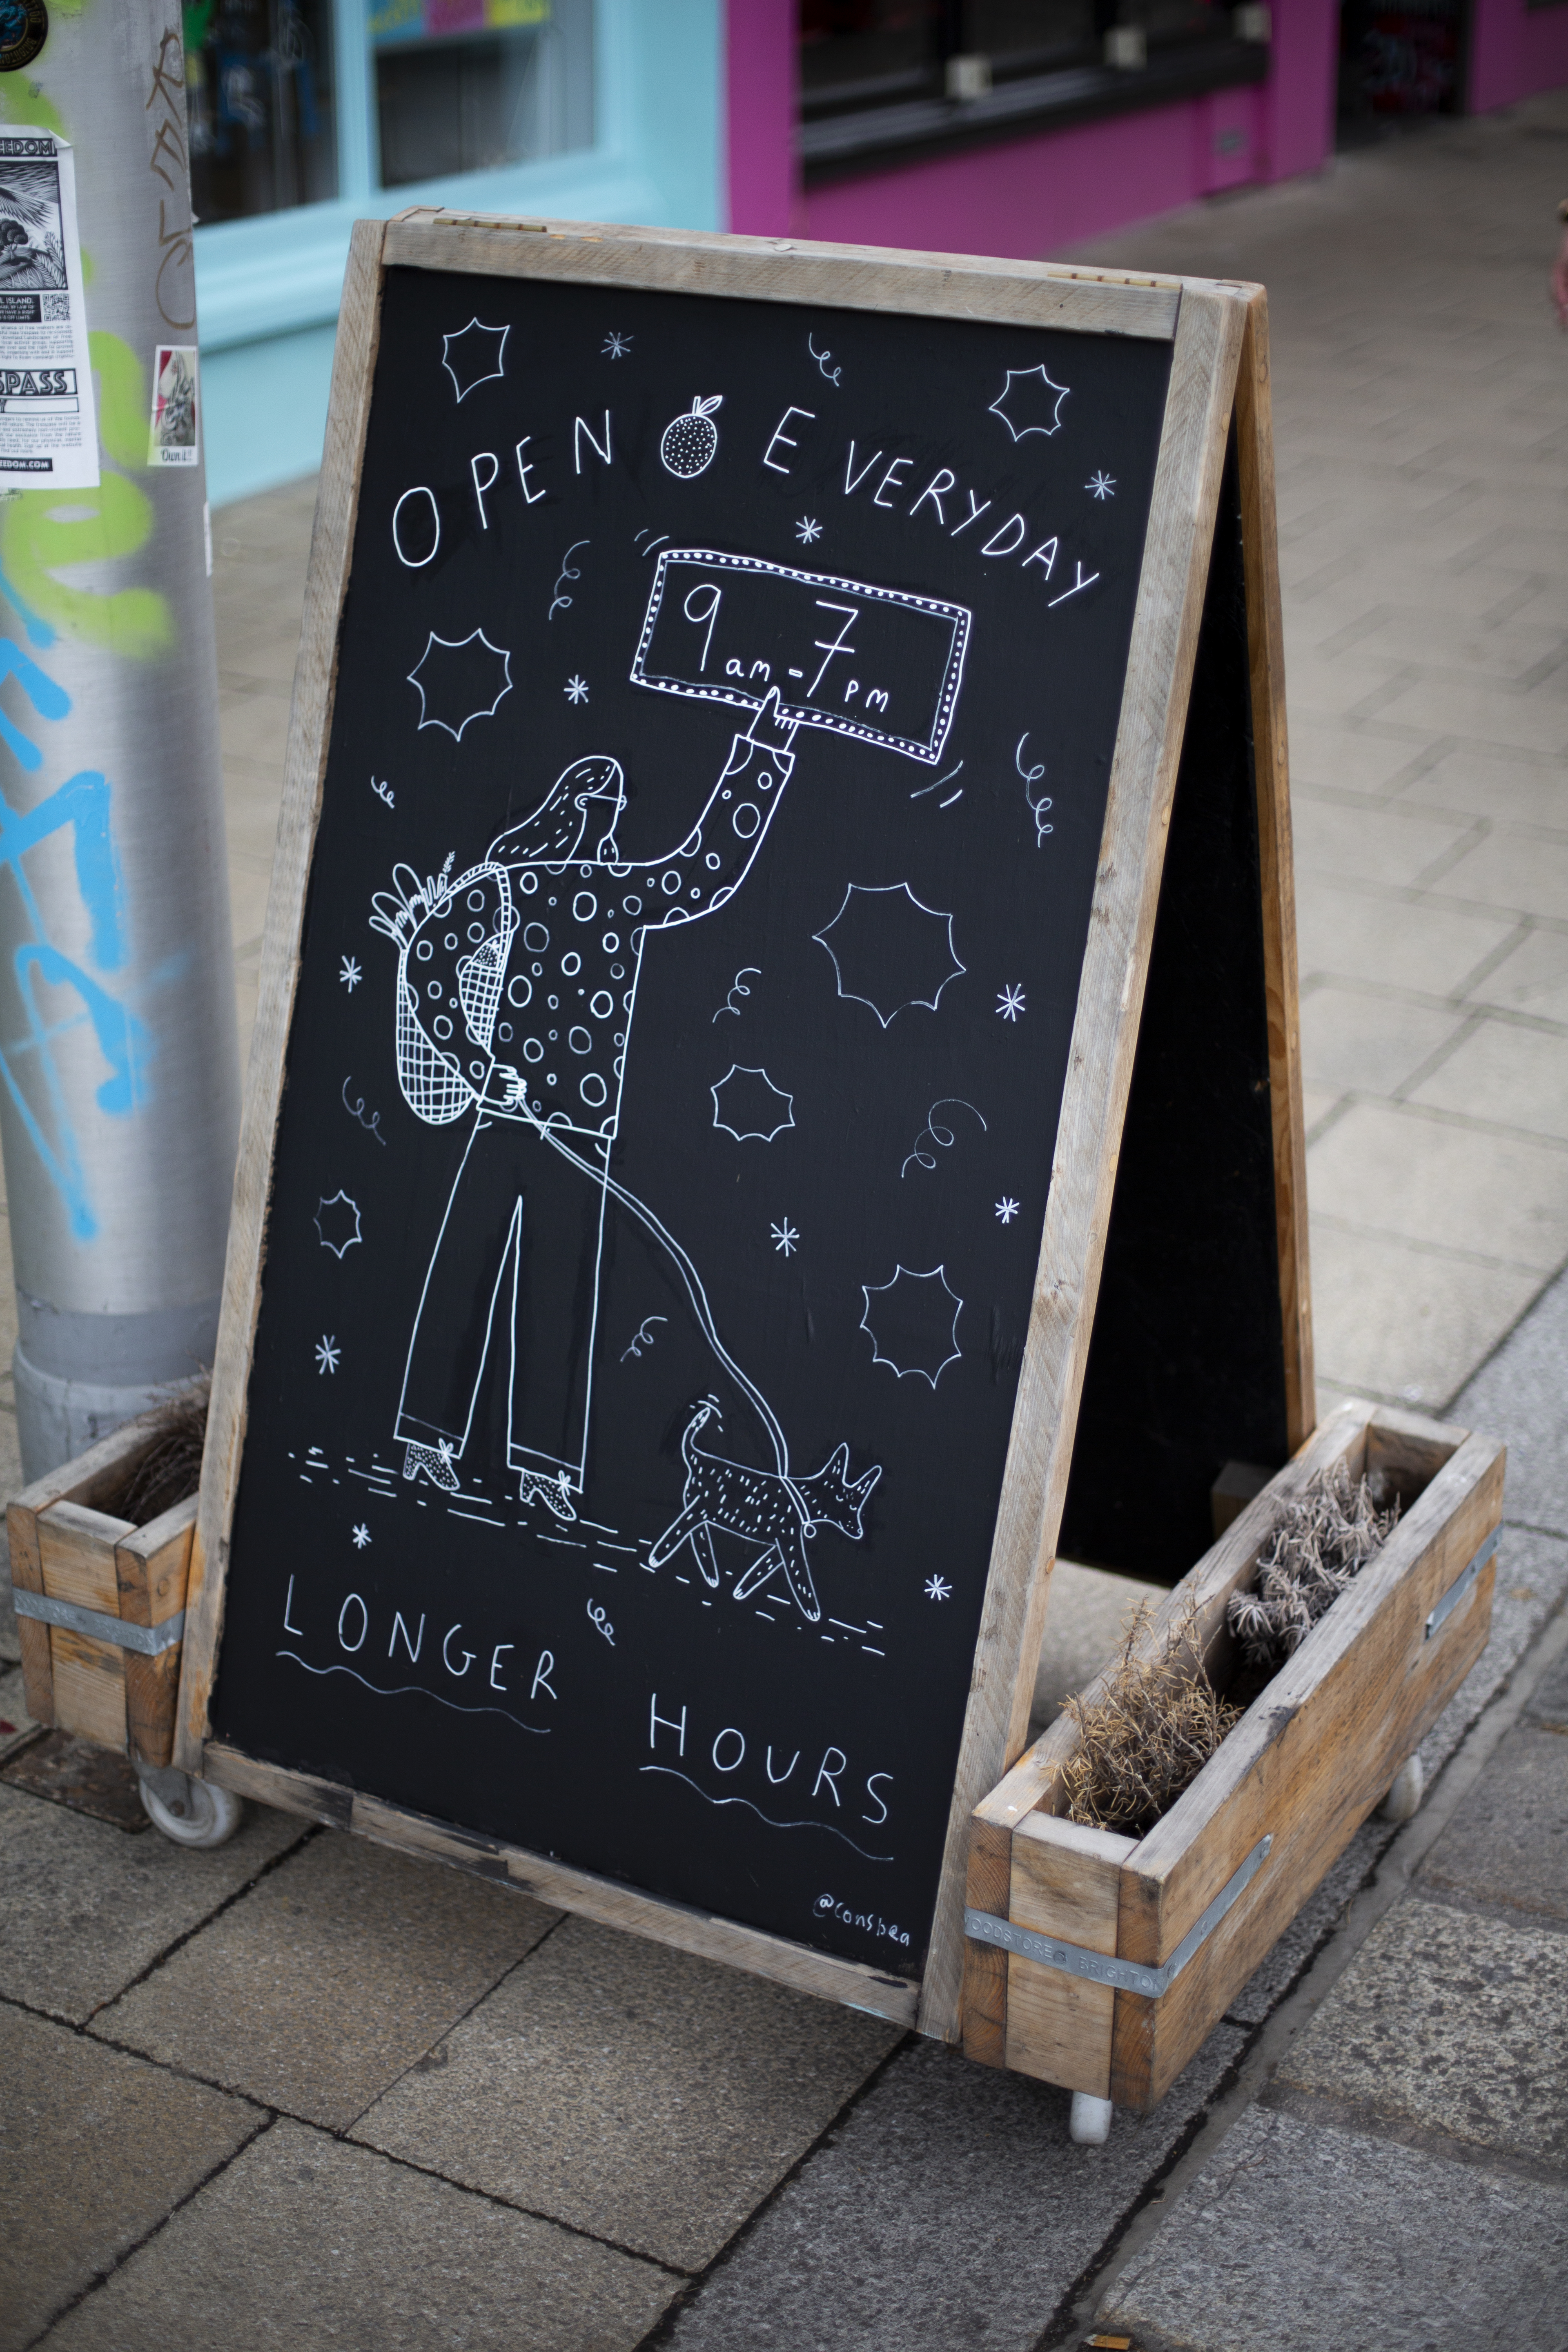 OPEN EVERYDAY
9am-7pm
LONGER HOURS
@conspea
WOODSTORE BRIGHTON
EEDOM
L ISLAND.
SPASS
EEDOM.COM
Own it!!